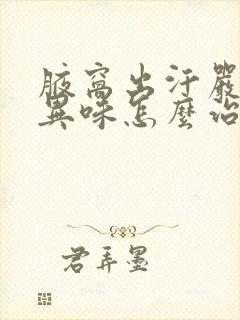 腋窩出汗嚴
異味怎麼治
君弄墨